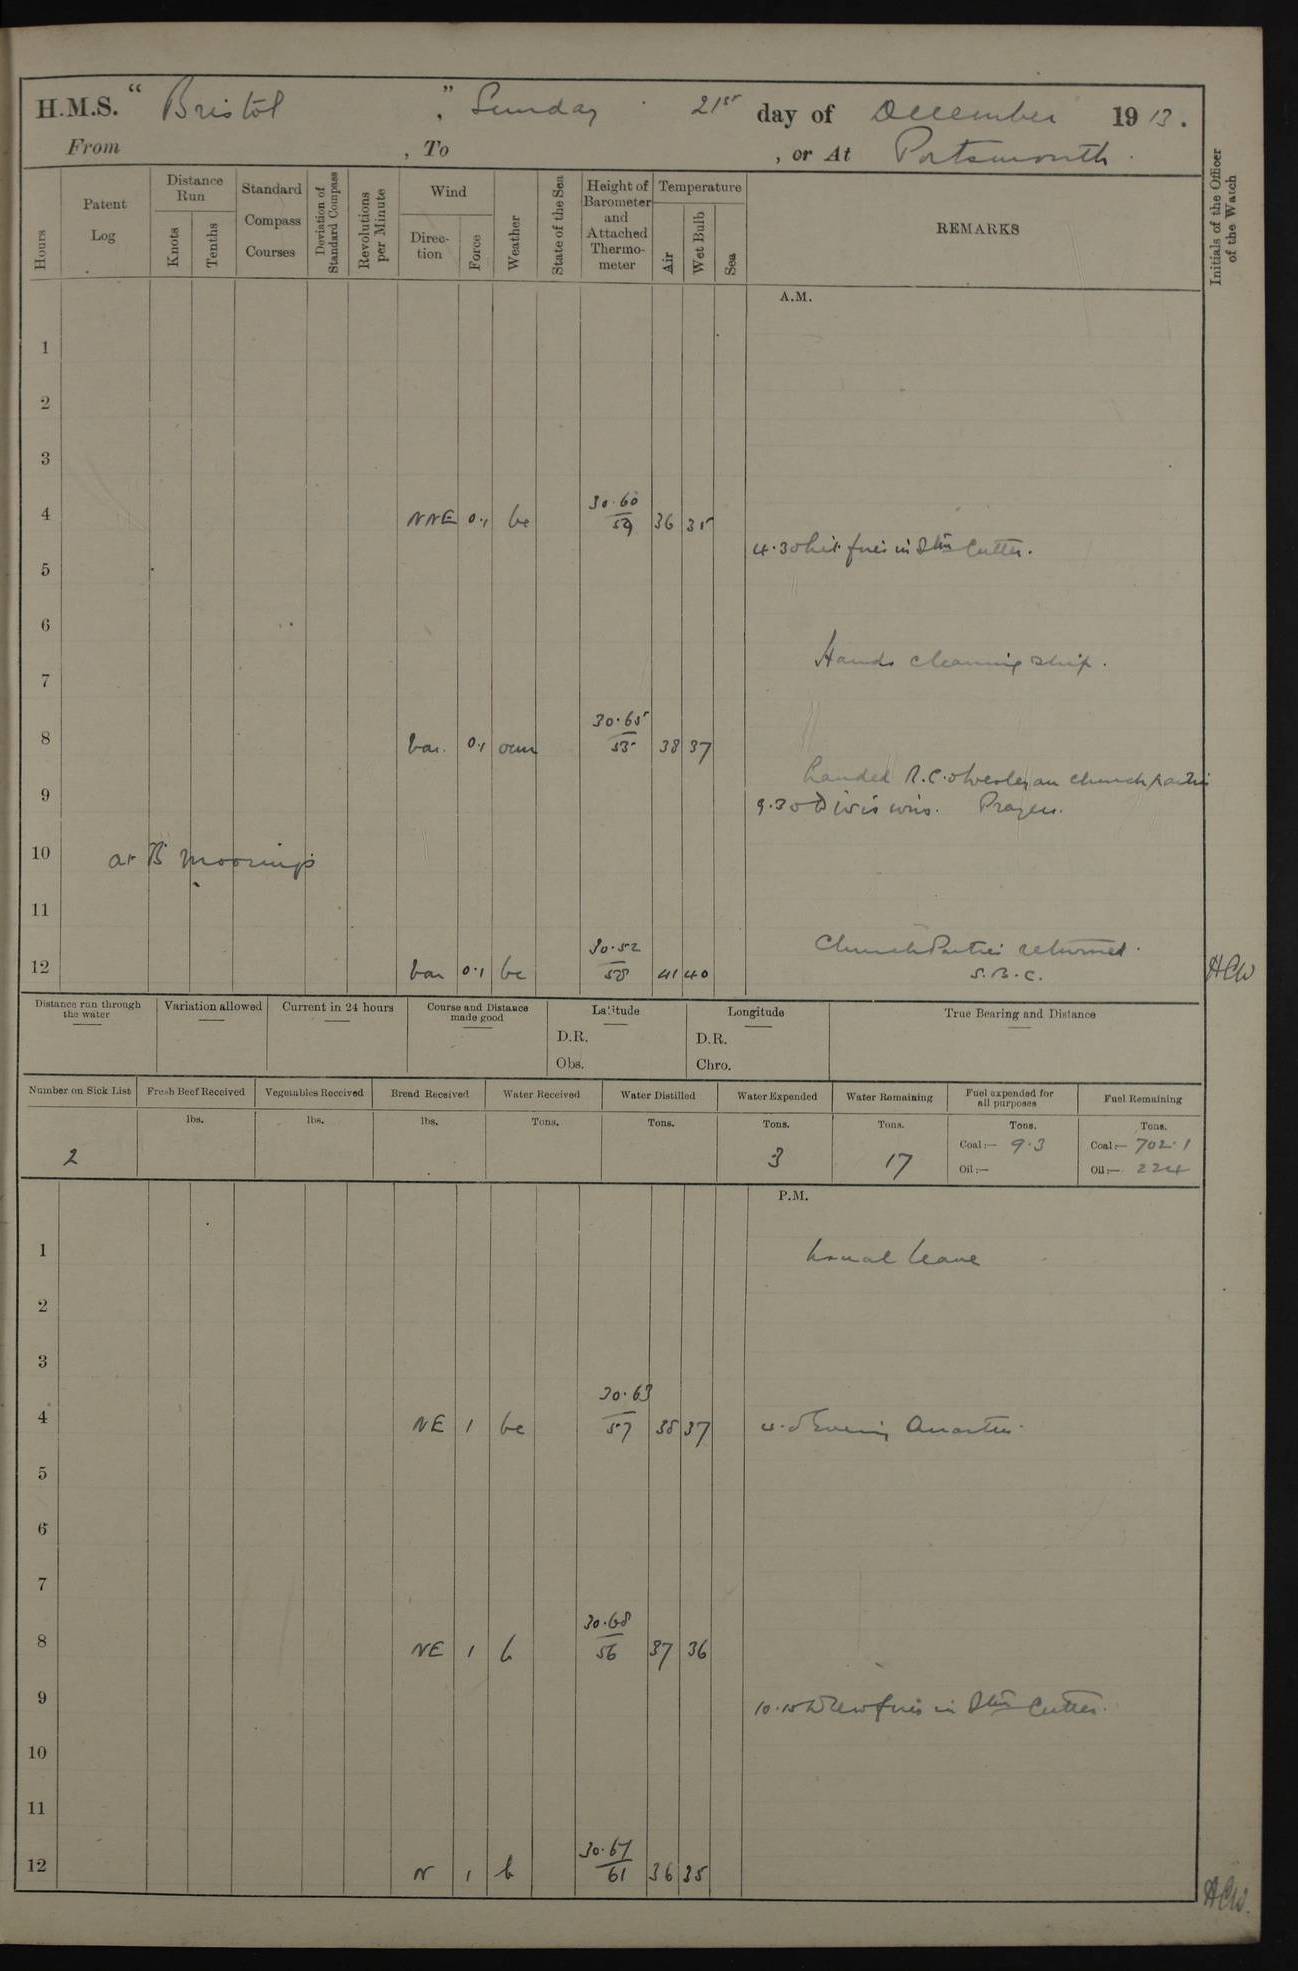 H.M.S. “ Bristol ”, Sunday 21st day of December 1913.
From , To , or At Portsmouth.
Hours
Patent Log
Distance Run
Knots
Tenths
Standard Compass Courses
Deviation of Standard Compass
Revolutions per Minute
Wind
Direction
Force
Weather
State of the Sea
Height of Barometer and Attached Thermometer
Temperature
Air
Wet Bulb
Sea
REMARKS
Initials of the Officer of the Watch
A.M.
1
2
3
4 NNE 0.1 bc 30.60 59 36 35
4.30 Lit fires in Stm Cutter.
5
6
Hands cleaning ship.
7
8 var. 0.1 ocm 30.65 55 38 37
Landed R.C. & Wesleyan church parties
9
9.30 Divisions. Prayers.
10 at B moorings
11
Church Parties returned.
12 var 0.1 bc 30.52 58 41 40 S.B.C. HCW
Distance run through the water
Variation allowed
Current in 24 hours
Course and Distance made good
Latitude
D.R.
Obs.
Longitude
D.R.
Chro.
True Bearing and Distance
Number on Sick List
Fresh Beef Received
Vegetables Received
Bread Received
Water Received
Water Distilled
Water Expended
Water Remaining
Fuel expended for all purposes
Fuel Remaining
lbs. lbs. lbs. Tons. Tons. Tons. Tons. Tons. Tons.
2 3 17
Coal:— 9.3 Coal:— 702.1
Oil:— Oil:— 224
P.M.
1 Usual leave
2
3
4 NE 1 bc 30.63 57 38 37 Evening Quarters.
5
6
7
8 NE 1 b 30.68 56 37 36
9
10.15 Drew fires in Stm Cutter.
10
11
12 N 1 b 30.67 61 36 35
HCW.